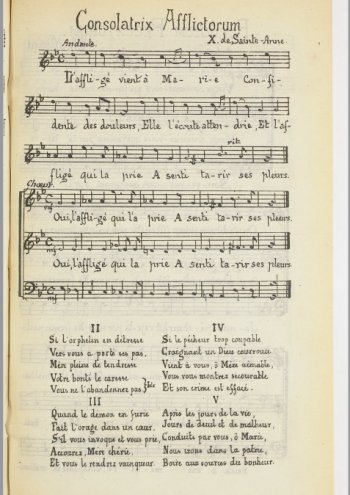 Consolatrix Afflictorum
Andante. X. de Sainte-Anne
L'affli-gé vient à Ma-ri-e Con-fi-
dente des douleurs, Elle l'écoute atten-drie, Et l'af-
rit.
fligé qui la prie A senti ta-rir ses pleurs.
Chœur.
Oui, l'affli-gé qui l'a prie A senti ta-rir ses pleurs.
mf
Oui, l'affligé qui la prie A senti ta-rir ses pleurs
mf
mf
II
Si l'orphelin en détresse
Vers vous a porté ses pas,
Mère pleine de tendresse
Votre bonté le caresse
Vous ne l'abandonnez pas } bis
III
Quand le démon en furie
Fait l'orage dans un cœur.
S'il vous invoque et vous prie,
Accourez, Mère chérie,
Et vous le rendrez vainqueur.
IV
Si le pécheur trop coupable
Craignant un Dieu courroucé
Vient à vous, ô Mère aimable,
Vous vous montrez secourable
Et son crime est effacé.
V
Après les jours de la vie,
Jours de deuil et de malheur,
Conduits par vous, ô Marie,
Nous irons dans la patrie,
Boire aux sources du bonheur.